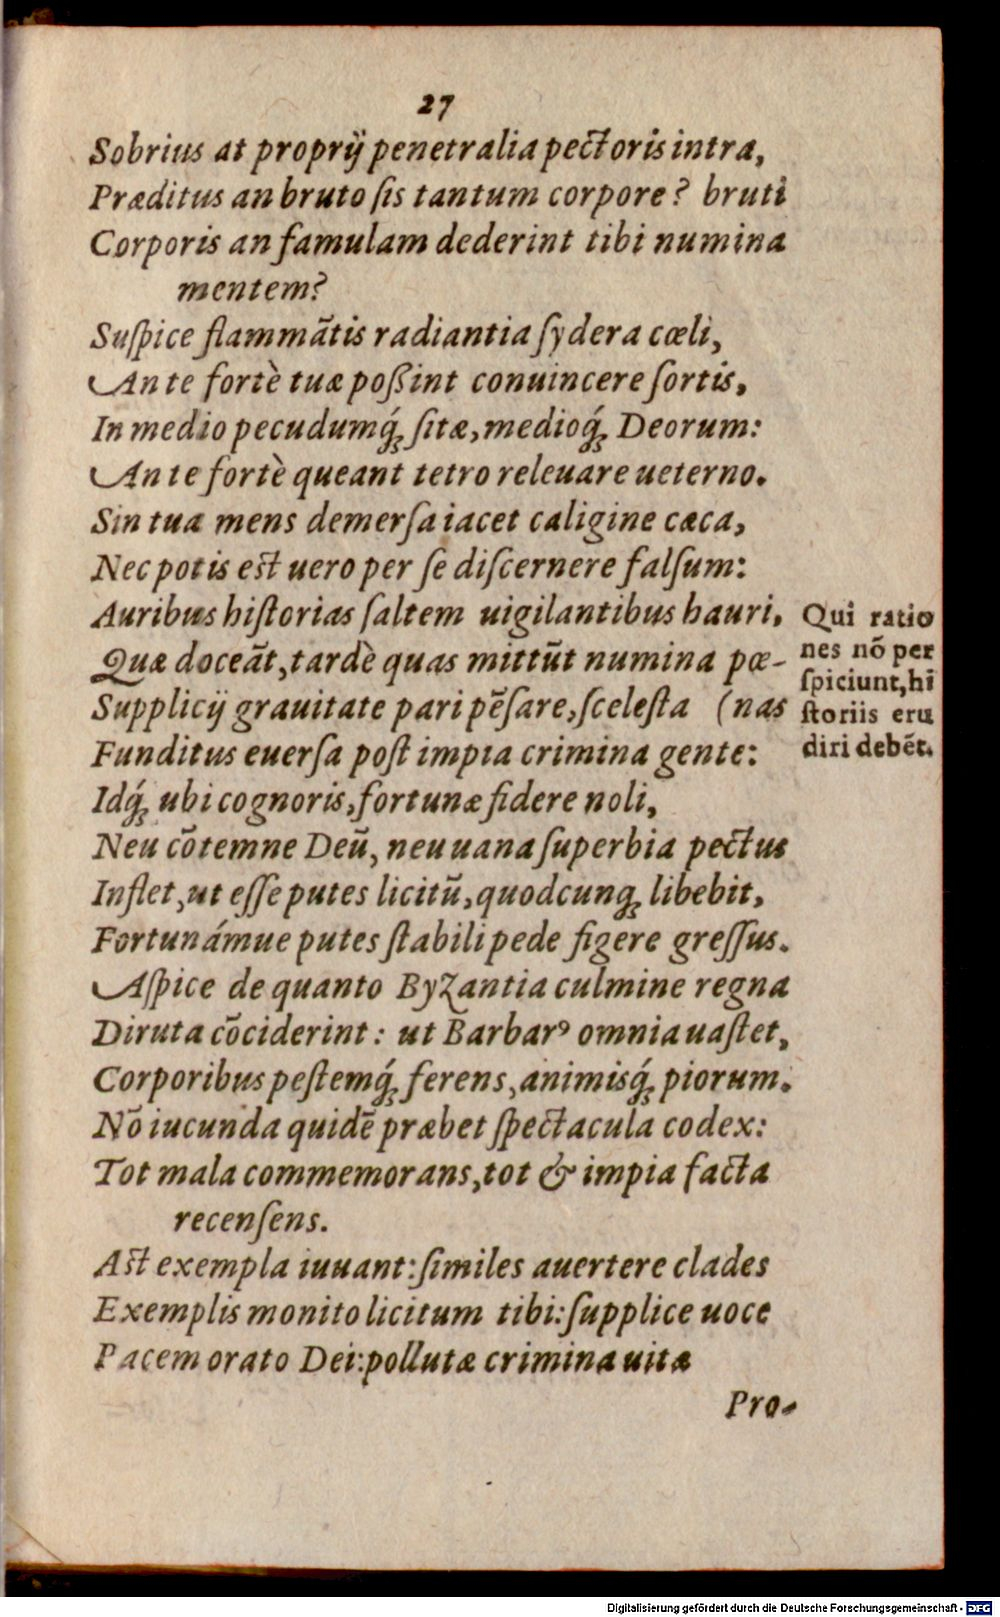 27
Sobrius at proprij penetralia pectoris intra,
Præditus an bruto ſis tantum corpore? bruti
Corporis an famulam dederint tibi numina
mentem?
Suſpice flammãtis radiantia ſydera cœli,
An te fortè tuæ poßint conuincere ſortis,
In medio pecudumq́ꝫ ſitæ, medioq́ꝫ Deorum:
An te fortè queant tetro releuare ueterno.
Sin tua mens demerſa iacet caligine cæca,
Nec potis est uero per ſe diſcernere falſum:
Auribus hiſtorias ſaltem uigilantibus hauri,
Quæ doceãt, tardè quas mittũt numina pœ-
Supplicij grauitate pari pẽſare, ſceleſta (nas
Funditus euerſa poſt impia crimina gente:
Idq́ꝫ ubi cognoris, fortunæ fidere noli,
Neu cõtemne Deũ, neu uana ſuperbia pectus
Inflet, ut eſſe putes licitũ, quodcunqꝫ libebit,
Fortunámue putes ſtabili pede figere greſſus.
Aſpice de quanto Byzantia culmine regna
Diruta cõciderint: ut Barbarꝰ omnia uaſtet,
Corporibus peſtemq́ꝫ ferens, animisq́ꝫ piorum.
Nõ iucunda quidẽ præbet ſpectacula codex:
Tot mala commemorans, tot & impia facta
recenſens.
Ast exempla iuuant: ſimiles auertere clades
Exemplis monito licitum tibi: ſupplice uoce
Pacem orato Dei: pollutæ crimina uitæ
Pro-
Qui ratio
nes nõ per
ſpiciunt, hi
ſtoriis eru
diri debẽt.
Digitalisierung gefördert durch die Deutsche Forschungsgemeinschaft - DFG